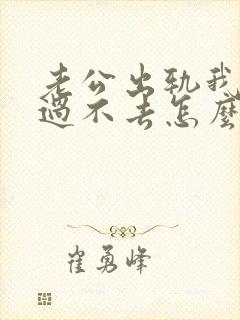 老公出轨我
过不去怎麼
崔勇峰